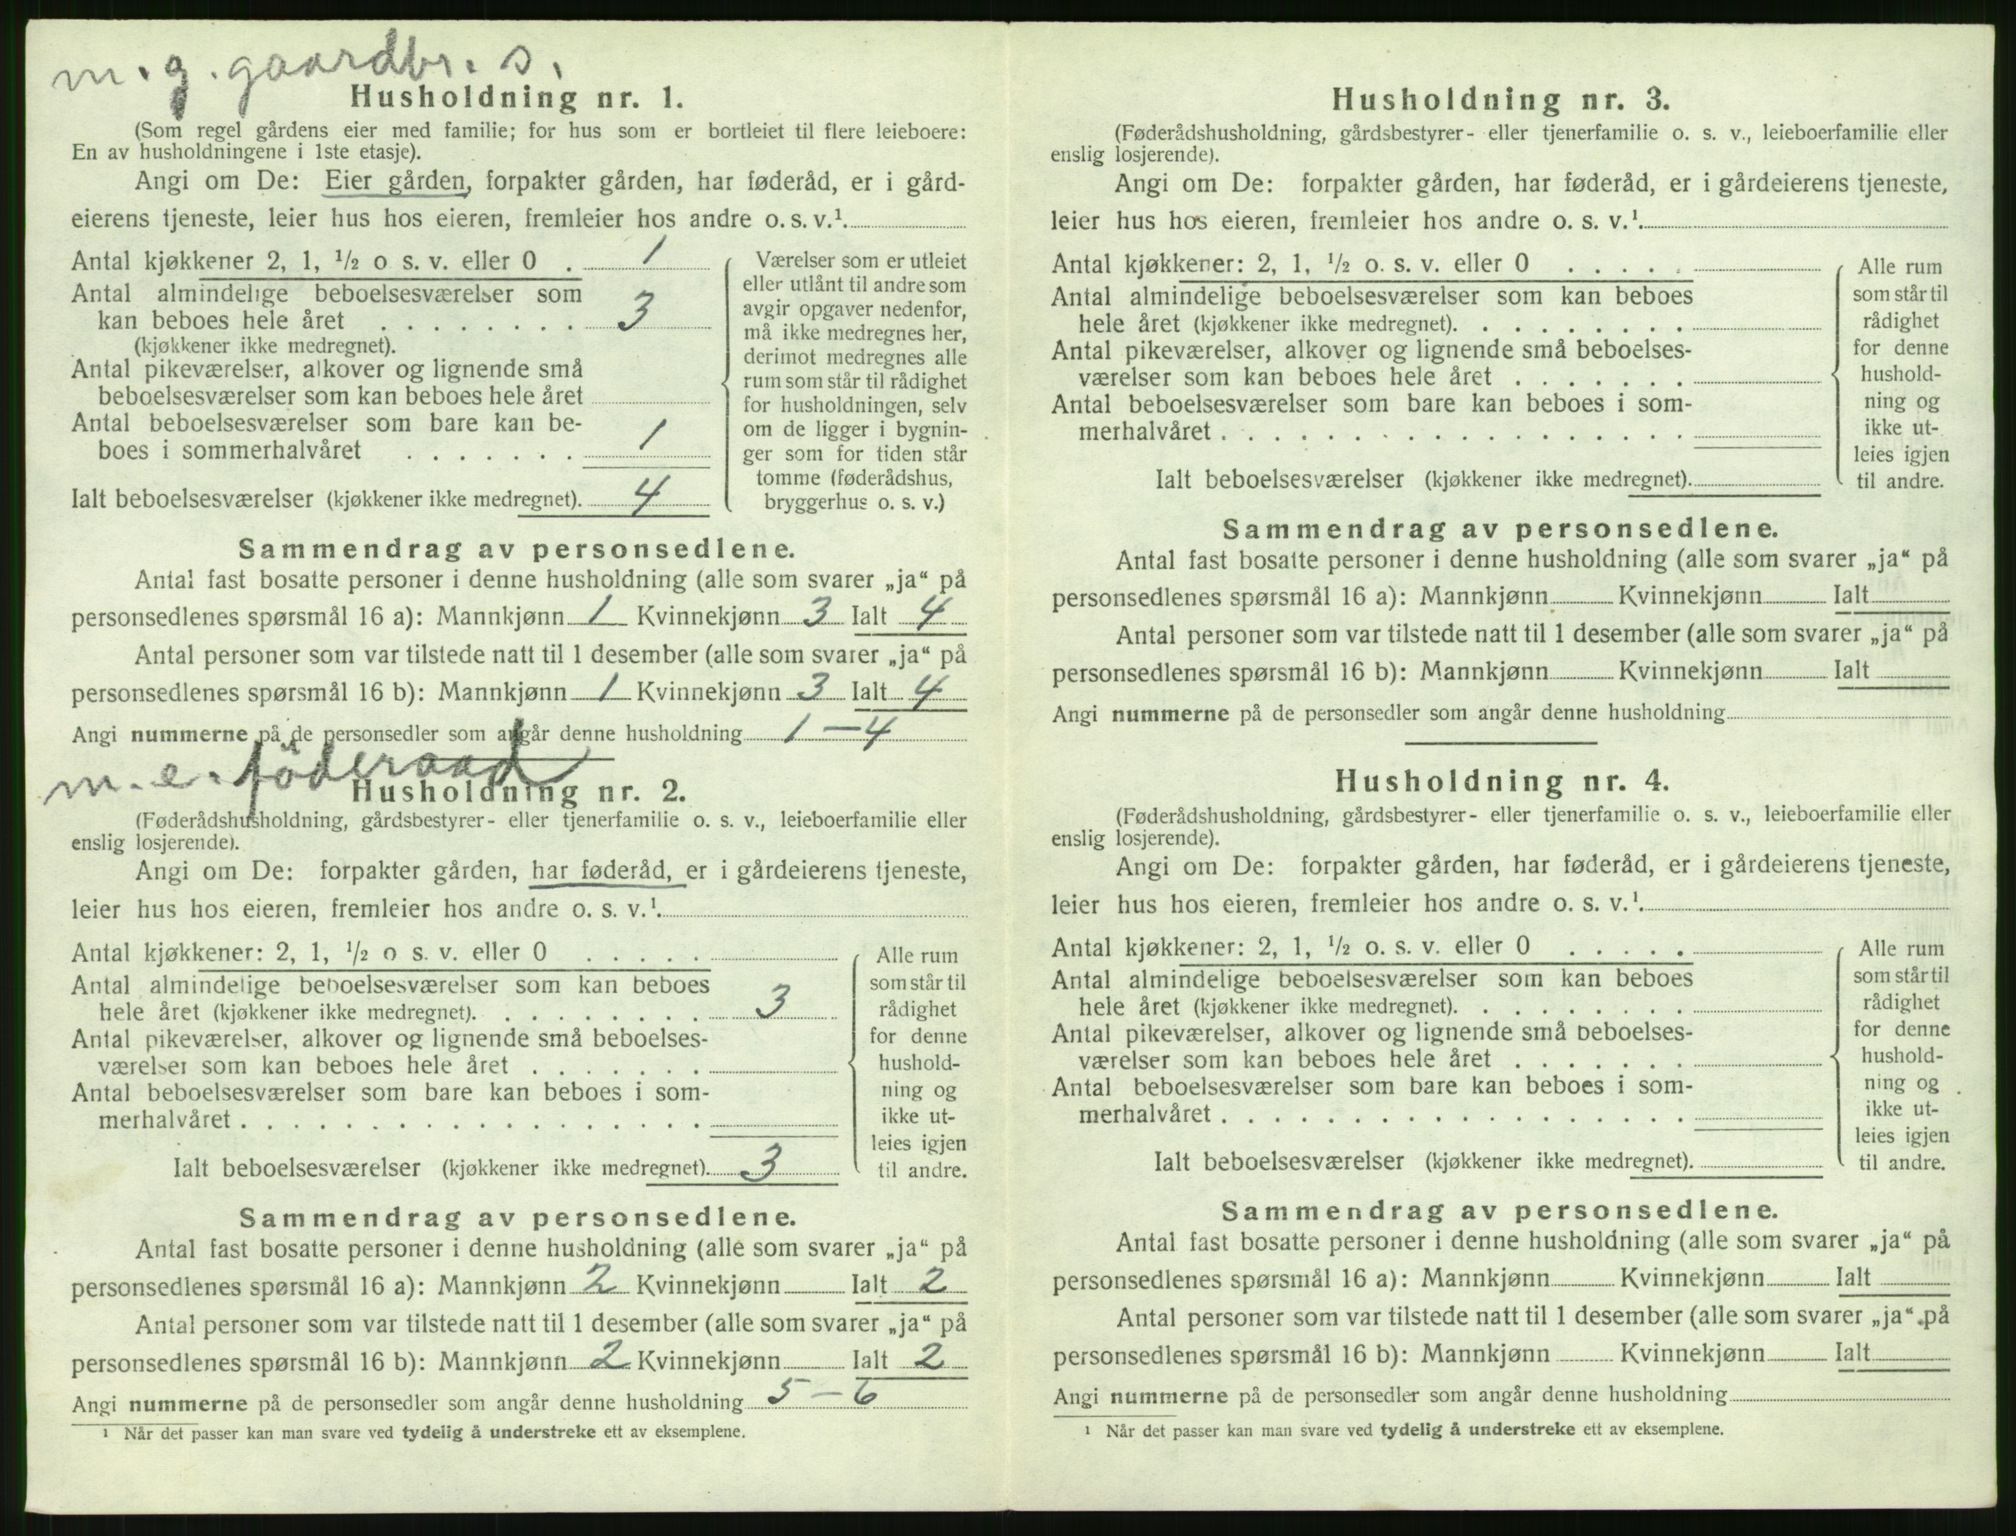 m. g. gaardbr. s.
Husholdning nr. 1.
(Som regel gårdens eier med familie; for hus som er bortleiet til flere leieboere:
En av husholdningene i 1ste etasje).
Angi om De: Eier gården, forpakter gården, har føderåd, er i gård-
eierens tjeneste, leier hus hos eieren, fremleier hos andre o. s. v.¹.
Antal kjøkkener 2, 1, ½ o s. v. eller 0 . 1
Antal almindelige beboelsesværelser som
kan beboes hele året . . . . . . . . 3
(kjøkkener ikke medregnet).
Antal pikeværelser, alkover og lignende små
beboelsesværelser som kan beboes hele året
Antal beboelsesværelser som bare kan be-
boes i sommerhalvåret . . . . . . . 1
Ialt beboelsesværelser (kjøkkener ikke medregnet). 4
Værelser som er utleiet
eller utlånt til andre som
avgir opgaver nedenfor,
må ikke medregnes her,
derimot medregnes alle
rum som står til rådighet
for husholdningen, selv
om de ligger i bygnin-
ger som for tiden står
tomme (føderådshus,
bryggerhus o. s. v.)
Sammendrag av personsedlene.
Antal fast bosatte personer i denne husholdning (alle som svarer „ja“ på
personsedlenes spørsmål 16 a): Mannkjønn 1 Kvinnekjønn 3 Ialt 4
Antal personer som var tilstede natt til 1 desember (alle som svarer „ja“ på
personsedlenes spørsmål 16 b): Mannkjønn 1 Kvinnekjønn 3 Ialt 4
Angi nummerne på de personsedler som angår denne husholdning 1 — 4
m. e. föderaad
Husholdning nr. 2.
(Føderådshusholdning, gårdsbestyrer- eller tjenerfamilie o. s. v., leieboerfamilie eller
enslig losjerende).
Angi om De: forpakter gården, har føderåd, er i gårdeierens tjeneste,
leier hus hos eieren, fremleier hos andre o. s. v.¹.
Antal kjøkkener: 2, 1, ½ o s. v. eller 0 . . . . .
Antal almindelige beboelsesværelser som kan beboes
hele året (kjøkkener ikke medregnet). . . . . . . . . 3
Antal pikeværelser, alkover og lignende små beboelses-
værelser som kan beboes hele året . . . . . . .
Antal beboelsesværelser som bare kan beboes i som-
merhalvåret . . . . . . . . . . . . . . . . . .
Ialt beboelsesværelser (kjøkkener ikke medregnet). 3
Alle rum
som står til
rådighet
for denne
hushold-
ning og
ikke ut-
leies igjen
til andre.
Sammendrag av personsedlene.
Antal fast bosatte personer i denne husholdning (alle som svarer „ja“ på
personsedlenes spørsmål 16 a): Mannkjønn 2 Kvinnekjønn Ialt 2
Antal personer som var tilstede natt til 1 desember (alle som svarer „ja“ på
personsedlenes spørsmål 16 b): Mannkjønn 2 Kvinnekjønn Ialt 2
Angi nummerne på de personsedler som angår denne husholdning 5 — 6
¹ Når det passer kan man svare ved tydelig å understreke ett av eksemplene.
Husholdning nr. 3.
(Føderådshusholdning, gårdsbestyrer- eller tjenerfamilie o. s. v., leieboerfamilie eller
enslig losjerende).
Angi om De: forpakter gården, har føderåd, er i gårdeierens tjeneste,
leier hus hos eieren, fremleier hos andre o. s. v.¹.
Antal kjøkkener: 2, 1, ½ o. s. v. eller 0 . . . . .
Antal almindelige beboelsesværelser som kan beboes
hele året (kjøkkener ikke medregnet). . . . . . . . .
Antal pikeværelser, alkover og lignende små beboelses-
værelser som kan beboes hele året . . . . . . .
Antal beboelsesværelser som bare kan beboes i som-
merhalvåret . . . . . . . . . . . . . . . . . .
Ialt beboelsesværelser (kjøkkener ikke medregnet).
Alle rum
som står til
rådighet
for denne
hushold-
ning og
ikke ut-
leies igjen
til andre.
Sammendrag av personsedlene.
Antal fast bosatte personer i denne husholdning (alle som svarer „ja“ på
personsedlenes spørsmål 16 a): Mannkjønn Kvinnekjønn Ialt
Antal personer som var tilstede natt til 1 desember (alle som svarer „ja“ på
personsedlenes spørsmål 16 b): Mannkjønn Kvinnekjønn Ialt
Angi nummerne på de personsedler som angår denne husholdning
Husholdning nr. 4.
(Føderådshusholdning, gårdsbestyrer- eller tjenerfamilie o. s. v., leieboerfamilie eller
enslig losjerende).
Angi om De: forpakter gården, har føderåd, er i gårdeierens tjeneste,
leier hus hos eieren, fremleier hos andre o. s. v.¹.
Antal kjøkkener: 2, 1, ½ o. s. v. eller 0 . . . . .
Antal almindelige beboelsesværelser som kan beboes
hele året (kjøkkener ikke medregnet). . . . . . . . .
Antal pikeværelser, alkover og lignende små beboelses-
værelser som kan beboes hele året . . . . . . .
Antal beboelsesværelser som bare kan beboes i som-
merhalvåret . . . . . . . . . . . . . . . . . .
Ialt beboelsesværelser (kjøkkener ikke medregnet).
Alle rum
som står til
rådighet
for denne
hushold-
ning og
ikke ut-
leies igjen
til andre.
Sammendrag av personsedlene.
Antal fast bosatte personer i denne husholdning (alle som svarer „ja“ på
personsedlenes spørsmål 16 a): Mannkjønn Kvinnekjønn Ialt
Antal personer som var tilstede natt til 1 desember (alle som svarer „ja“ på
personsedlenes spørsmål 16 b): Mannkjønn Kvinnekjønn Ialt
Angi nummerne på de personsedler som angår denne husholdning
¹ Når det passer kan man svare ved tydelig å understreke ett av eksemplene.